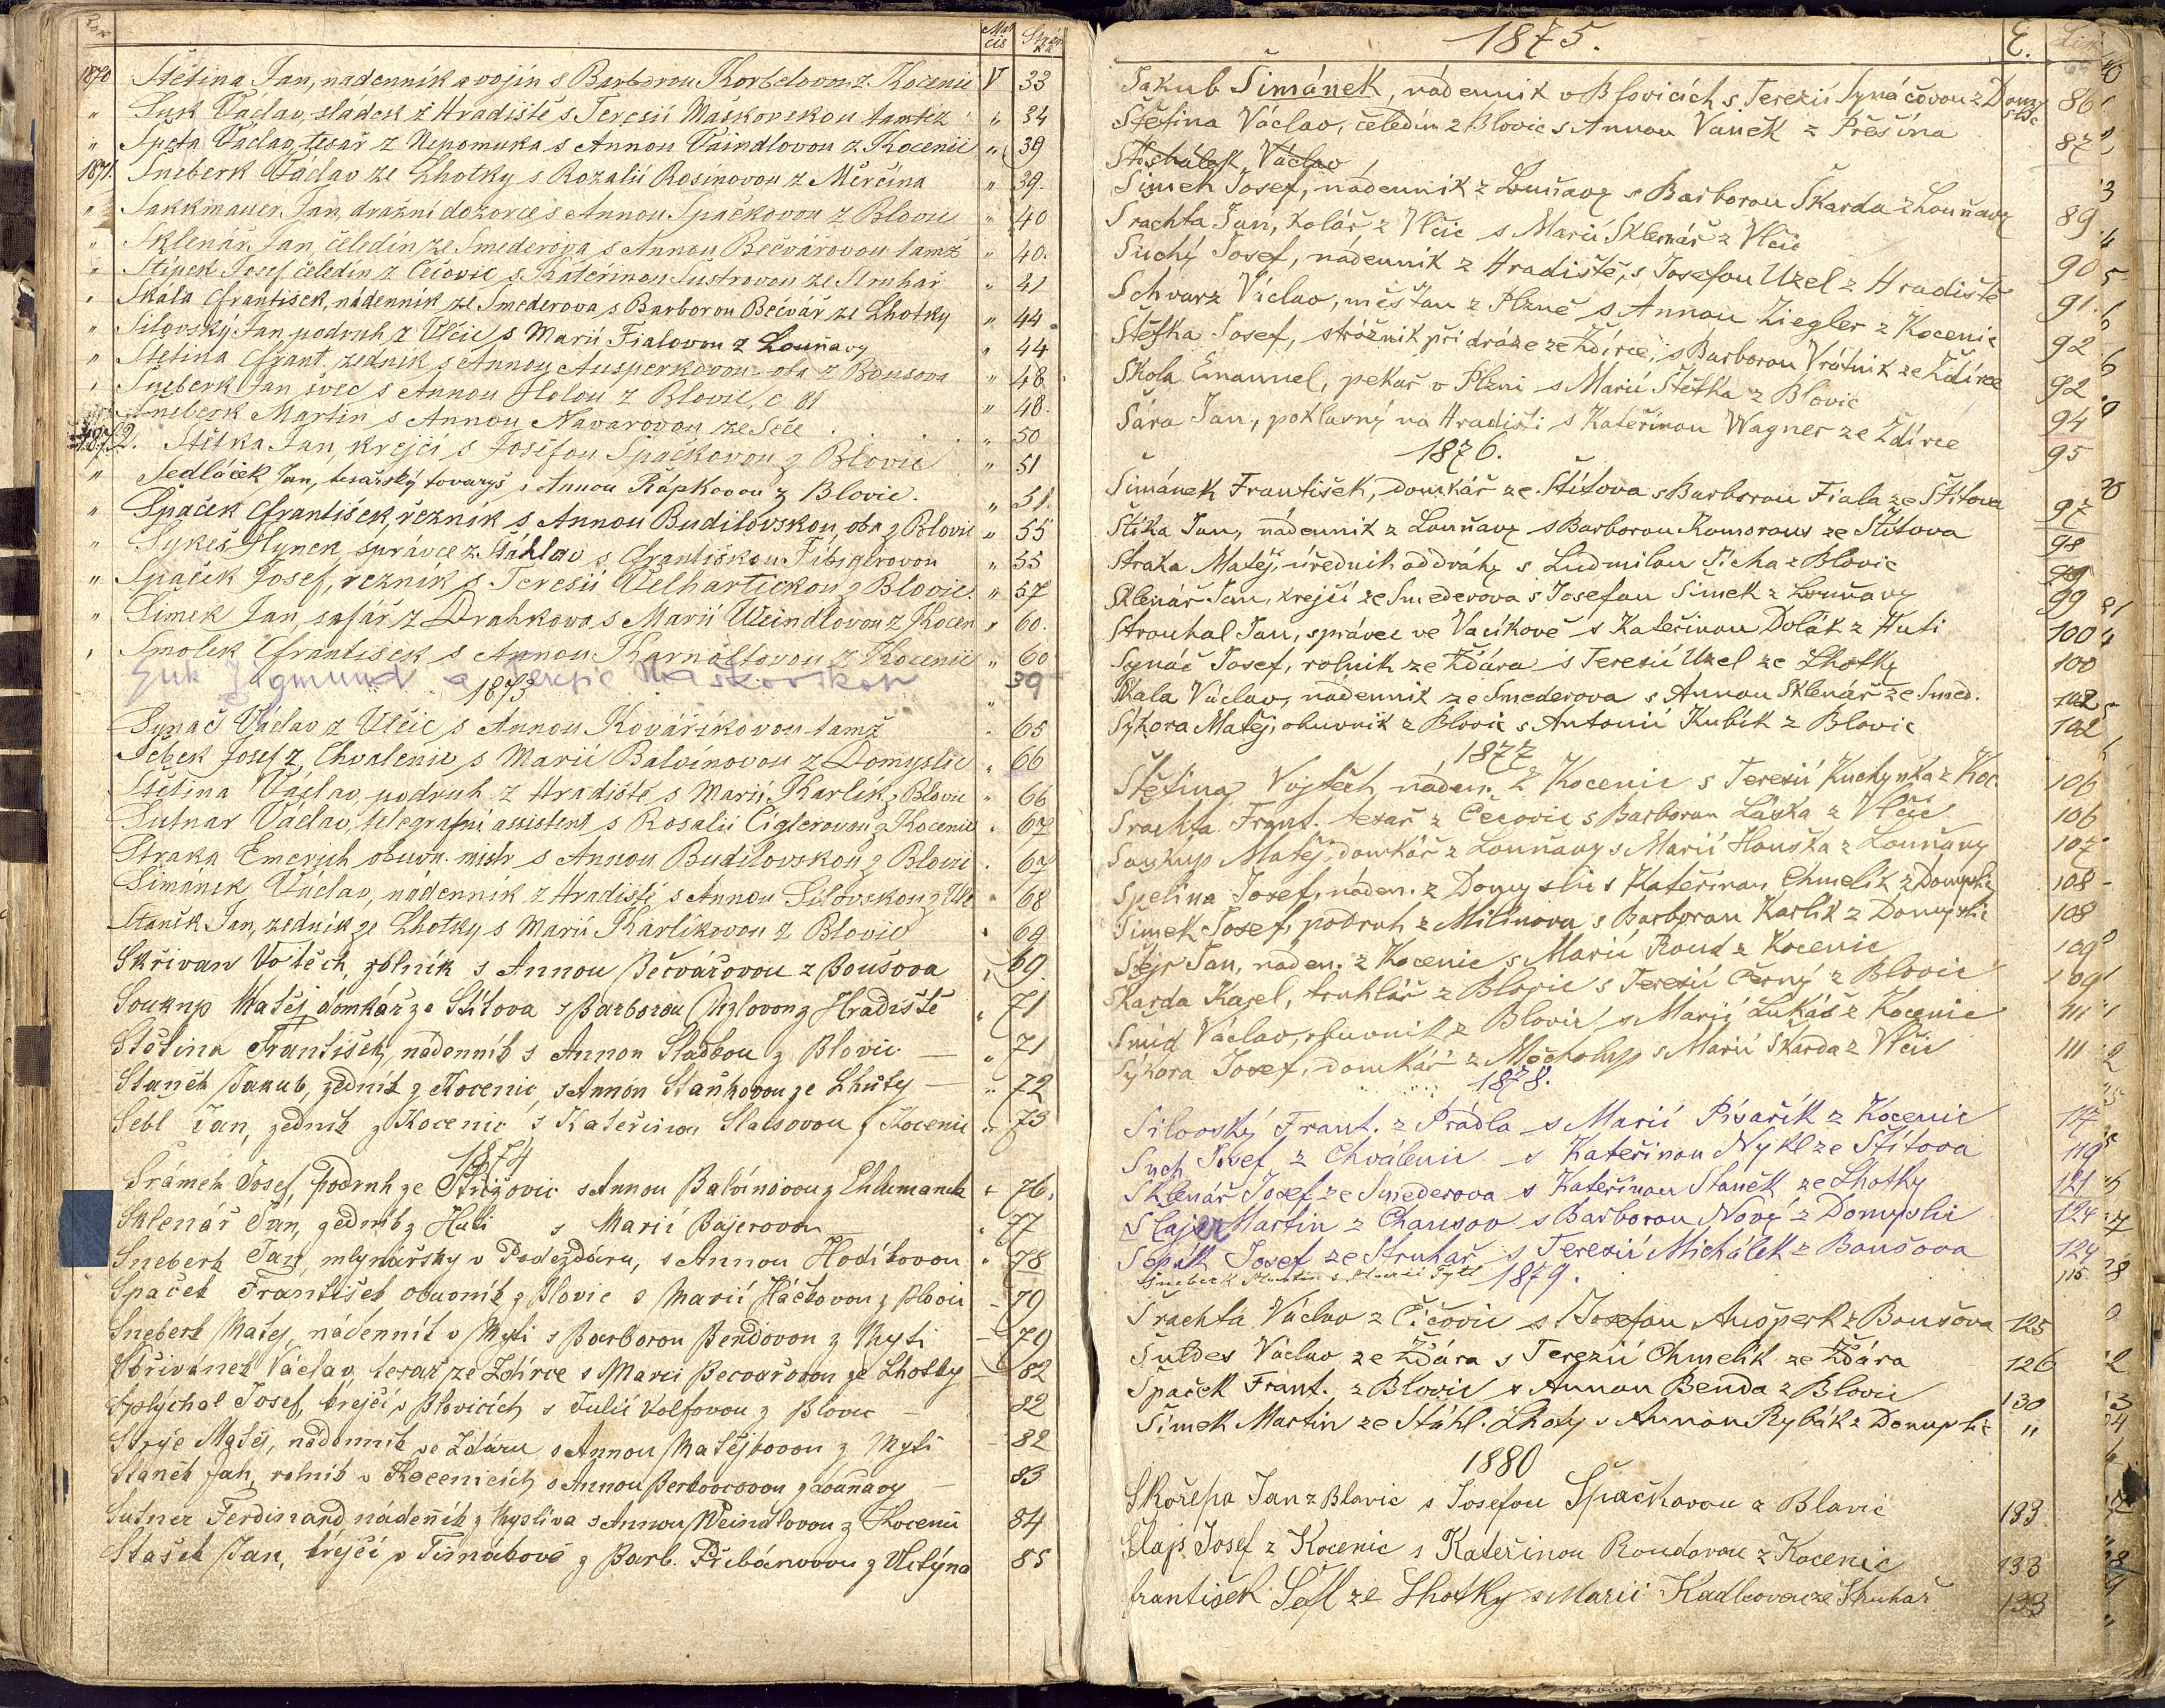 Rok Mat. čís Strán ka
1870 Štětina Jan, nadenník a vojín s Barborou Korbelovou z Kocenic V 33
" Suk Václav, sladek z Hradiště s Teresií Maškovskou tamtéž " 34
" Speta Václav, tesař z Nepomuka s Annou Vaindlovou z Kocenic " 39
1871. Šneberk Václav ze Lhotky s Rozalií Rosinovou z Měrčína " 39.
" Sakkmauer Jan, dražní dozorce s Annou Špačkovou z Blovic " 40
" Sklenář Jan, čeledín ze Smederova s Annou Bečvárovou tamž " 40.
" Štípek Josef čeledín z Čečovic s Kateřinou Šustrovou ze Struhař " 41
" Skála František, nádenník ze Smederova s Barborou Bečvář ze Lhotky " 44.
" Silovský Jan podruh z Vlčic s Marií Fialovou z Louňavy " 44
" Štětina Frant. zedník s Annou Ausperkovou oba z Boušova " 48
" Šneberk Jan švec s Annou Holou z Blovic, č 81 " 48.
Šneberk Martin s Annou Navarovou ze Seče " 50
1872. Štětka Jan, krejčí s Josefou Špačkovou z Blovic " 51
" Sedláček Jan, tesařský tovaryš s Annou Rápkovou z Blovic. " 51.
" Špaček František, řezník s Annou Budilovskou, oba z Blovic " 55
" Sykes Hynek, správce z Štáhlav s Františkou Fibigerovou " 55
" Špaček Josef, řezník s Teresií Velhartickou z Blovic. " 57
" Šimek Jan, šafář z Drahkova s Marií Weindlovou z Kocen " 60.
" Smolek František s Annou Karnoltovou z Kocenic " 60
Suk Zigmund a Terezie Maškovskou 39
1873 "
Synáč Václav z Vlčic s Annou Kovaříkovou tamž " 65
Šebek Josef z Chvalenic s Marií Balvínovou z Domyslic " 66
Štětina Václav, podruh z Hradiště s Marií Karlík z Blovic " 66
Sutnar Václav, telegrafní assistent s Rosalií Ciglerovou z Kocenic " 67
Straka Emerich obuvn. mistr s Annou Budilovskou z Blovic " 67
Šimánek Václav, nádenník z Hradiště s Annou Silovskou z Vlč " 68
Staněk Jan, zedník ze Lhotky s Marií Karlíkovou z Blovic " 69
Skřivan Votěch, rolník s Annou Bečvářovou z Boušova " 69.
Soukup Matěj domkář ze Štítova s Barborou Uzlovou z Hradiště " 71
Štětina František, nadenník s Annou Sladkou z Blovic — " 71
Staněk Jakub, zedník z Kocenic, s Annou Staňkovou ze Lhůty — " 72
Šebl Jan, zedník z Kocenic s Kateřinou Slacsovou z Kocenic " 73
1874
Šrámek Josef, podruh ze Střížovic s Annou Balvínovou z Chlumanek " 76.
Sklenář Ján, zedník z Huti s Marií Bajerovou " 77
Šneberk Jan, mlynářský v Podeždáru, s Annou Hodíkovou " 78
Špaček František obuvník z Blovic s Marií Háčkovou z Blovic - 79
Šneberk Matej, nádenník v Myti s Barborou Bendovou z Myti - 79
Skřivánek Václav, tesař ze Zdírce s Marií Becvařovou ze Lhotky - 82
Splýchal Josef, krejčí v Blovicích s Julií Volfovou z Blovic — 82
Strýc Matěj, nádenník ve Zdáru s Annou Matějkovou z Myti - 82
Staněk Jan, rolník v Kocenicích s Annou Berkovcovou z Louňavy — 83
Sutner Ferdinand nádeník z Mysliva s Annou Weindlovou z Kocenic 84
Stašek Jan, krejčí v Tisnákově z Barb. Přibáňovou z Vlkýna 85
1875. Č. List
Jakub Šimánek, nádenník v Blovicích s Terezií Synáčovou z Domyslic 86
Štětina Václav, čeledín z Blovic s Annou Vaněk z Přešína 87
Stichálek, Václav
Šimek Josef, nádenník z Louňavy s Barborou Škarda z Louňavy 89
Šrachta Jan, kolář z Vlčic s Marií Sklenář z Vlčic 90
Suchý Josef, nádenník z Hradiště, s Josefou Uzel z Hradiště 91.
Schvarz Václav, měšťan z Plzně s Annou Ziegler z Kocenic 92
Štětka Josef, strážník při dráze ze Ždírce, s Barborou Vrátník ze Ždírce 92
Skola Emanuel, pekař v Plzni s Marií Štětka z Blovic 94
Sára Jan, poklasný na Hradišti s Kateřinou Wagner ze Ždírce 95
1876.
Šimánek František, domkář ze Štítova s Barborou Fiala ze Štítova 97
Štika Jan, nádenník z Louňavy s Barborou Komorous ze Štítova 98
Straka Matěj, úředník od dráhy s Ludmilou Ticha z Blovic 99
Sklenář Jan, krejčí ze Smederova s Josefou Šimek z Louňavy 99
Strouhal Jan, správce ve Vacíkově s Kateřinou Dolák z Huti 100
Synáč Josef, rolník ze Ždára s Terezií Uzel ze Lhotky 100
Skala Václav, nádenník ze Smederova s Annou Sklenář ze Smed. 102
Sýkora Matěj, obuvník z Blovic s Antonií Kubík z Blovic 102
1877
Štětina Vojtěch náden. z Kocenic s Terezií Kuchynka z Koc. 106
Šrachta Frant. tesař z Čečovic s Barborou Láska z Vlčic 106
Soukup Matěj, domkář z Louňavy s Marií Houška z Louňavy 107
Spelina Josef, náden. z Domyslic s Kateřinou Chmelík z Domyslic 108
Šimek Josef, podruh z Milinova s Barborou Karlík z Domyslic 108
Štejr Jan, náden. z Kocenic s Marií Roud z Kocenic 109
Škarda Karel, truhlář z Blovic s Terezií Černý z Blovic 109
Šmíd Václav, obuvník z Blovic s Marií Lukáš z Kocenic 111
Sýkora Josef, domkář z Močholup s Marií Škarda z Vlčic 111
1878.
Silovský Frant. z Prádla s Marií Pisařík z Kocenic 117
Such Josef z Chválenic s Kateřinou Nykl ze Štítova 119
Sklenář Josef ze Smederova s Kateřinou Staněk ze Lhotky 121
Šlajer Martin z Chausov s Barborou Nový z Domyslic 124
Šepák Josef ze Struhař s Terezií Michálek z Boušova 124
Šneberk Martin s Marií Tytl 115
1879.
Šrachta Václav z Čičovic s Josefou Aušperk z Boušova 125
Šuldes Václav ze Ždára s Terezií Chmelík ze Ždára 126
Špaček Frant. z Blovic s Annou Benda z Blovic 130
Šimek Martin ze Stáhl. Lhoty s Annou Rybák z Domyslic "
1880
Skořepa Jan z Blovic s Josefou Špačkovou z Blovic 133
Šlajs Josef z Kocenic s Kateřinou Roudovou z Kocenic 133
František Šefl ze Lhotky s Marií Kadlecovou ze Struhař 133